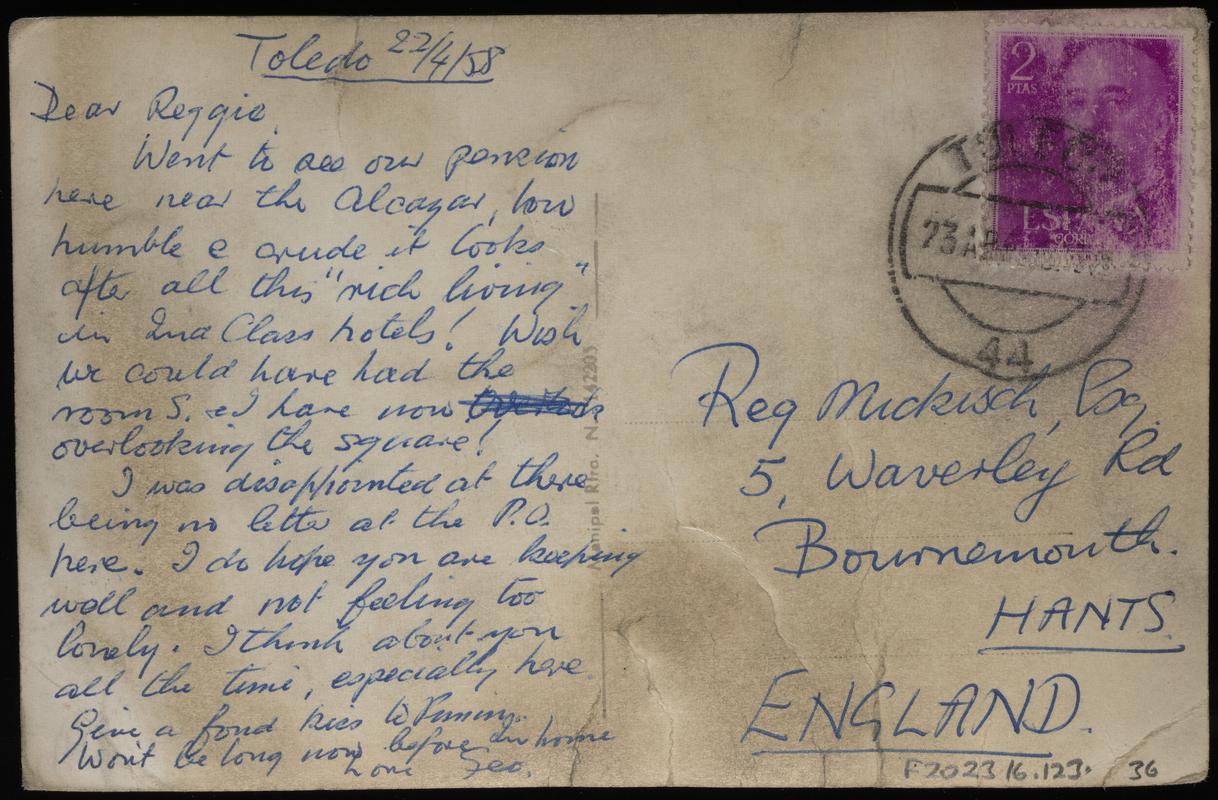 Toledo 22/4/58
Dear Reggie,
Went to see our pension
here near the Alcazar, how
humble & crude it looks
after all this "rich living"
in 2nd Class hotels! Wish
we could have had the
room S. & I have now
overlooking the square!
I was disappointed at there
being no letter at the P.O.
here. I do hope you are keeping
well and not feeling too
lonely. I think about you
all the time, especially here.
Give a fond kiss to
Won't be long now before I'm home
Love Geo.
2
PTAS
ESPAÑA
CORREOS
TOLEDO
23 ABR
44
Reg Mickisch, Esq.
5, Waverley Rd
Bournemouth.
HANTS.
ENGLAND.
F2023/6.123. 36